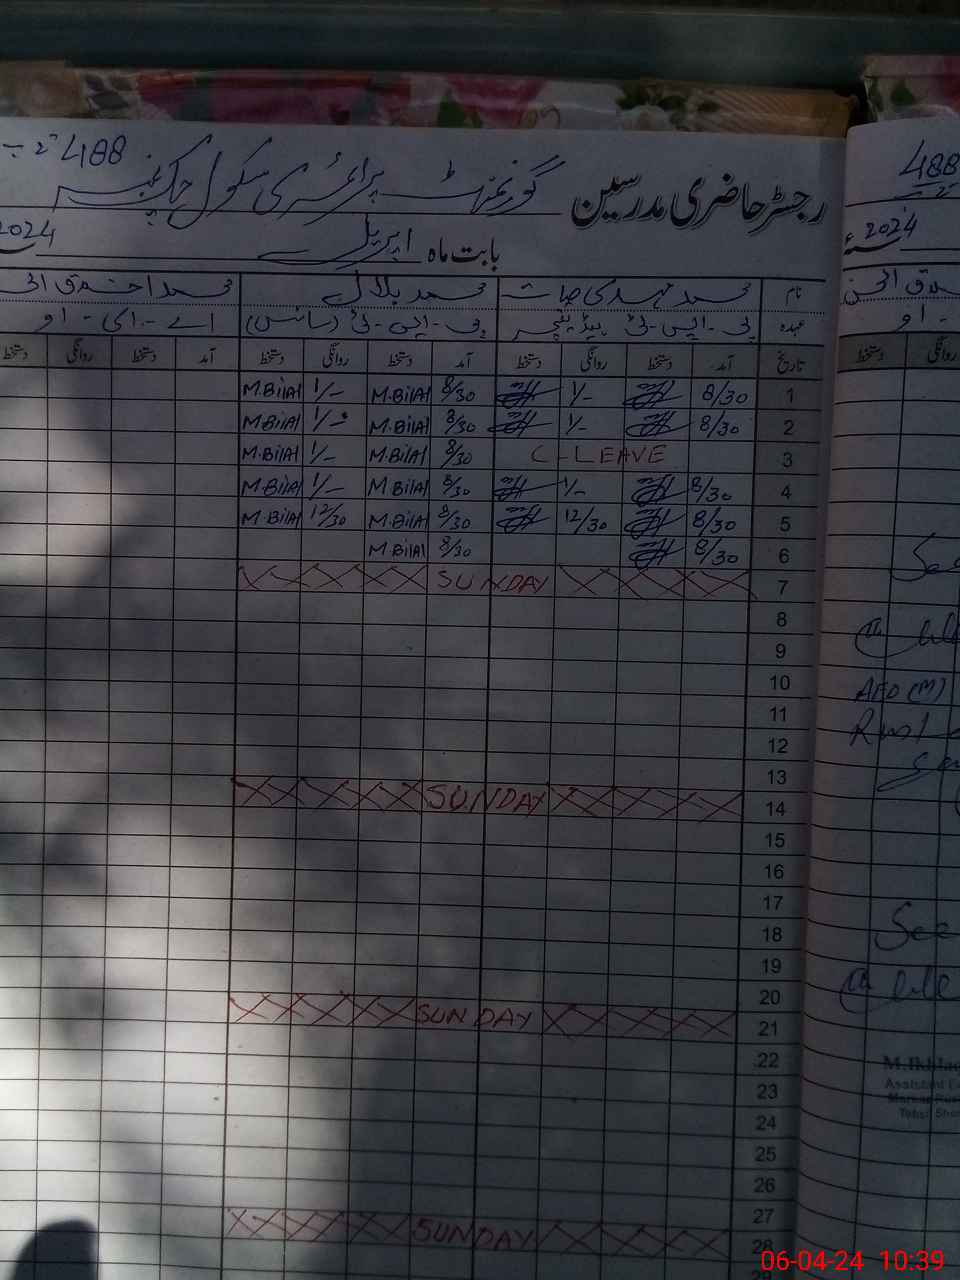 488
گورنمنٹ پرائمری سکول چک نمبر
رجسٹر حاضری مدرسین
488
2024 بابت ماہ اپریل
2024
نام محمد بلال
عہدہ پی-ایس-ٹی ہیڈ ٹیچر پی-ایس-ٹی (سائنس) اے-ای-او
تاریخ آمد دستخط روانگی دستخط آمد دستخط روانگی دستخط آمد دستخط روانگی دستخط
روانگی دستخط
1 8/30 1/- 8/30 M.Bilal 1/- M.Bilal
2 8/30 1/- 8/30 M.Bilal 1/- M.Bilal
3 C-LEAVE 8/30 M.Bilal 1/- M.Bilal
4 8/30 1/- 8/30 M.Bilal 1/- M.Bilal
5 8/30 12/30 8/30 M.Bilal 12/30 M.Bilal
6 8/30 8/30 M.Bilal
7 SUNDAY
8
9
10
11
12
13
14 SUNDAY
15
16
17
18
19
20
21 SUNDAY
22
23
24
25
26
27
28 SUNDAY
AEO (M)
See
06-04-24 10:39